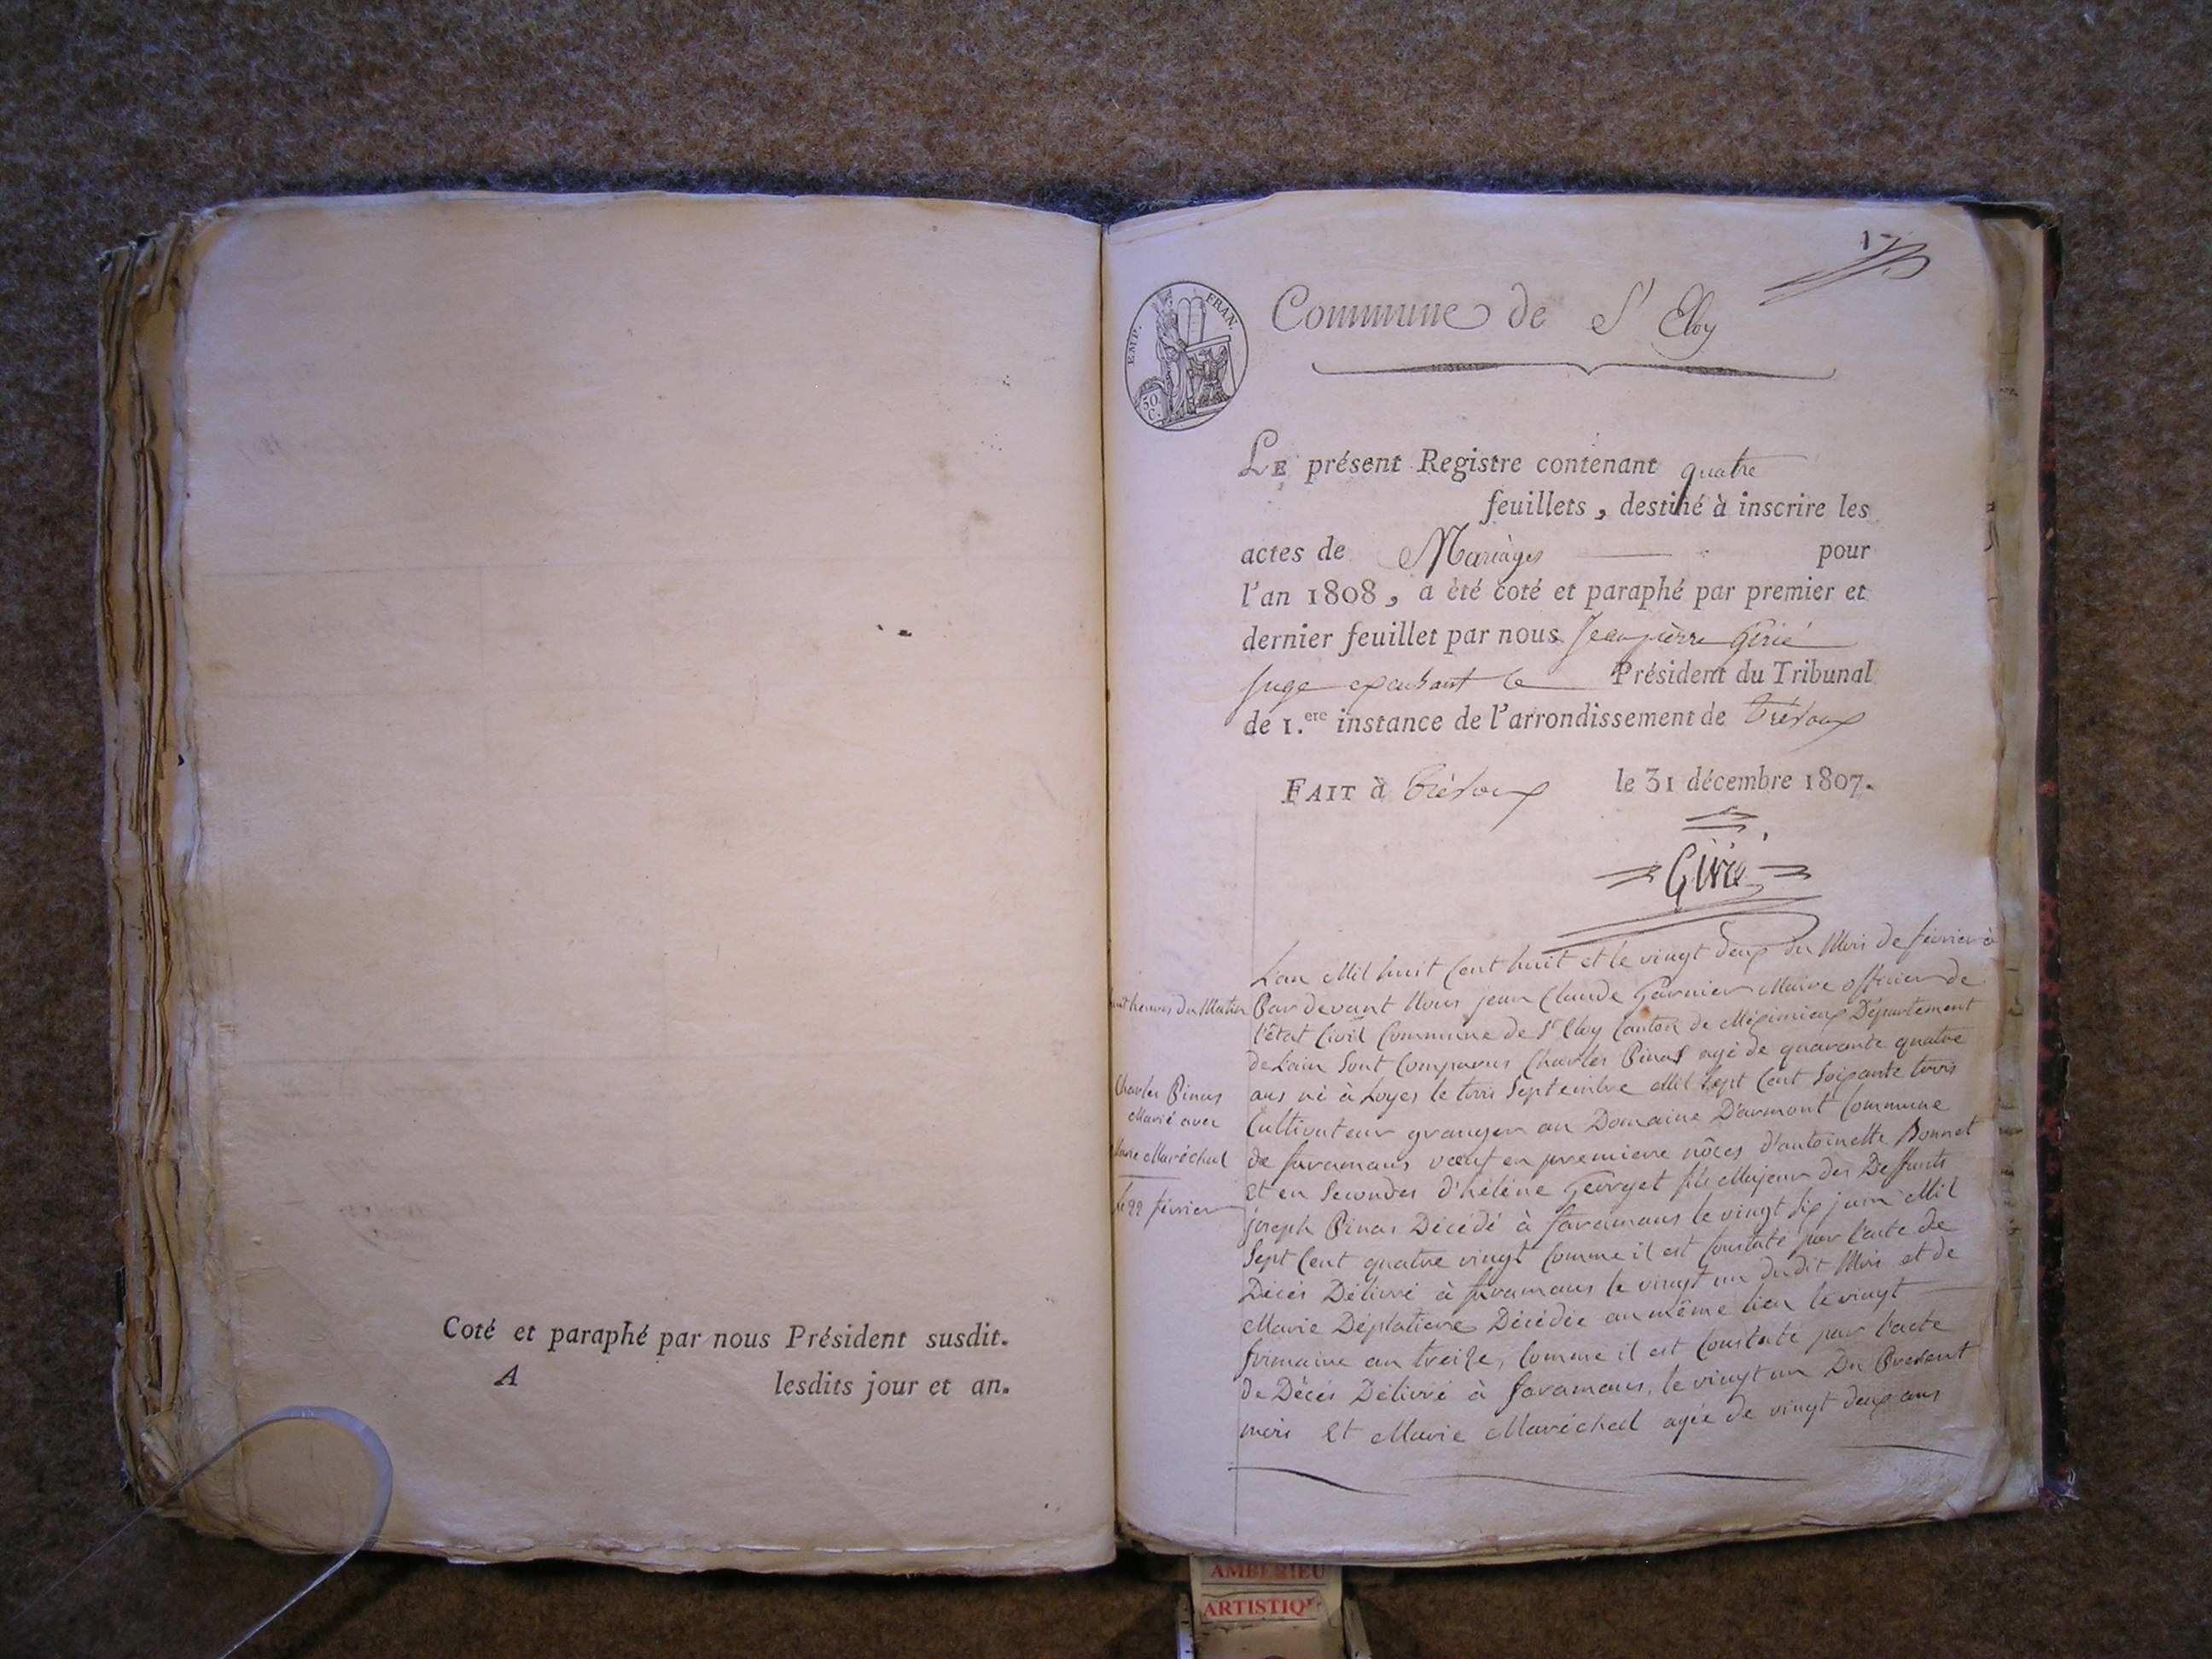 Coté et paraphé par nous Président susdit.
A lesdits jour et an.
1
EMP. FRAN.
30
C.
Commune de St Eloy
LE présent Registre contenant quatre
feuillets, destiné à inscrire les
actes de Mariages pour
l'an 1808, a été coté et paraphé par premier et
dernier feuillet par nous Jean pierre Girié
Juge expeusant le Président du Tribunal
de 1.ere instance de l'arrondissement de Trévoux
FAIT à Trévoux le 31 décembre 1807.
Girié
L'an Mil huit Cent huit et le vingt deux du Mois de février à
huit heures du Matin Par devant Nous jean Claude Garnier Maire officier de
l'état Civil Commune de St Eloy Canton de Méximieux Département
de Lain Sont Comparus Charles Pinas agé de quarante quatre
ans né à Loyes le trois Septembre Mil Sept Cent Soixante trois
Cultivateur granger au Domaine D'armont Commune
de faramans vœuf en premiere nôces d'antoinette Bonnet
Et en Secondes d'hélène Georget fils Majeur des Deffunts
joseph Pinas Décédé à faramans le vingt six juin Mil
Sept Cent quatre vingt Comme il est Constaté par l'acte de
Décès Délivré à faramans le vingt un dudit Mois et de
Marie Déplatiere Décédée au même lieu le vingt
frimaire an treize, Comme il est Constaté par l'acte
de Décès Délivré à faramans, le vingt un Du Present
mois Et Marie Maréchal agée de vingt deux ans
Charles Pinas
Marié avec
Marie Maréchal
le 22 février